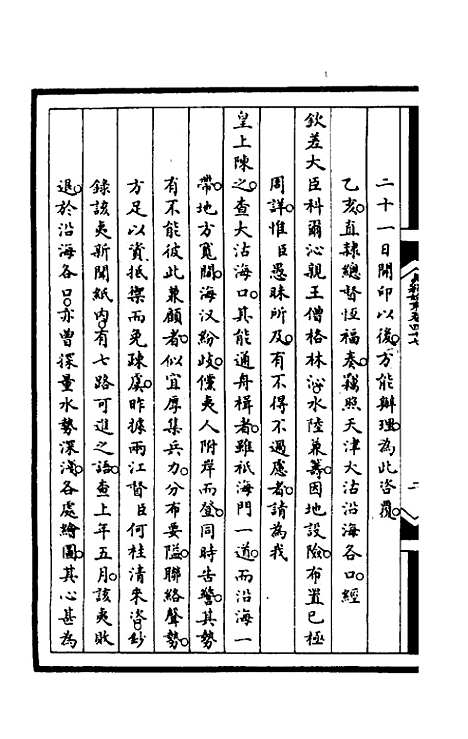 二十一日開印以後。方能辦理。為此咨覆。
乙亥。直隸總督恆福奏。竊照天津大沽沿海各口。經
欽差大臣科爾沁親王僧格林沁水陸兼籌。因地設險。布置已極
周詳。惟臣愚昧所及。有不得不過慮者。請為我
皇上陳之。查大沽海口。其能通舟楫者。雖祇海門一道。而沿海一
帶。地方寬闊。海汊紛歧。儻夷人附岸而登。同時告警。其勢
有不能彼此兼顧者。似宜厚集兵力。分布要隘。聯絡聲勢。
方足以資抵禦而免疎虞。昨據兩江督臣何桂清來咨。鈔
錄該夷新聞紙內。有七路可進之語。查上年五月。該夷敗
退。於沿海各口。亦曾探量水勢深淺。各處繪圖。其心甚為